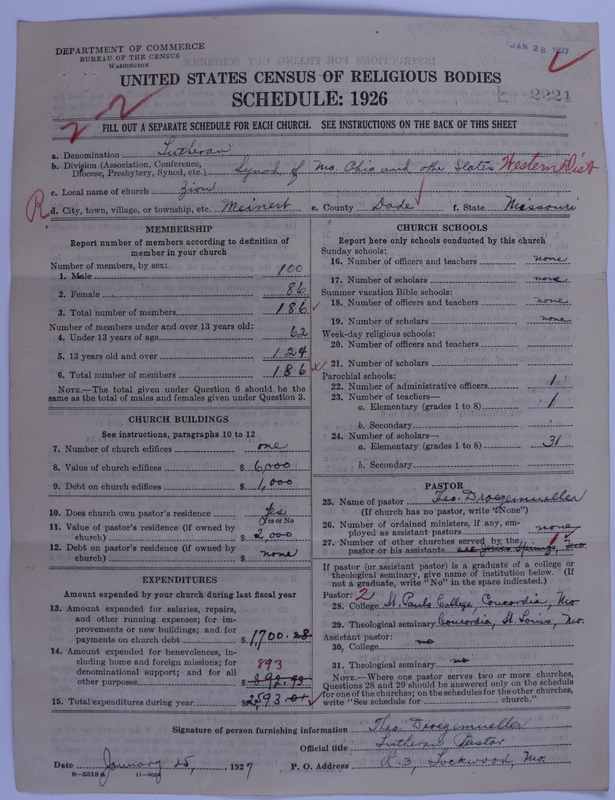 DEPARTMENT OF COMMERCE
BUREAU OF THE CENSUS
WASHINGTON
JAN 28 1927
UNITED STATES CENSUS OF RELIGIOUS BODIES
SCHEDULE: 1926
2221
2-2
FILL OUT A SEPARATE SCHEDULE FOR EACH CHURCH. SEE INSTRUCTIONS ON THE BACK OF THIS SHEET
a. Denomination Lutheran
b. Division (Association, Conference, Diocese, Presbytery, Synod, etc.) Synod of Mo. Ohio and other States Western Dist
c. Local name of church Zion
R d. City, town, village, or township, etc. Meinert e. County Dade f. State Missouri
MEMBERSHIP
Report number of members according to definition of
member in your church
Number of members, by sex:
1. Male 100
2. Female 86
3. Total number of members 186
Number of members under and over 13 years old:
4. Under 13 years of age 62
5. 13 years old and over 124
6. Total number of members 186
NOTE.—The total given under Question 6 should be
same as the total of males and females given under Question 3.
CHURCH BUILDINGS
See instructions, paragraphs 10 to 12
7. Number of church edifices one
8. Value of church edifices $ 6,000
9. Debt on church edifices $ 1,000
10. Does church own pastor's residence Yes
Yes or No
11. Value of pastor's residence (if owned by
church) $ 2,000
12. Debt on pastor's residence (if owned by
church) $ none
EXPENDITURES
Amount expended by your church during last fiscal year
13. Amount expended for salaries, repairs,
and other running expenses; for im-
provements or new buildings; and for
payments on church debt $ 1,700.28
14. Amount expended for benevolences, in-
cluding home and foreign missions; for 893
denominational support; and for all
other purposes $ 892.73
15. Total expenditures during year $ 2593.01
CHURCH SCHOOLS
Report here only schools conducted by this church
Sunday schools:
16. Number of officers and teachers none
17. Number of scholars none
Summer vacation Bible schools:
18. Number of officers and teachers none
19. Number of scholars none
Week-day religious schools:
20. Number of officers and teachers
21. Number of scholars
Parochial schools:
22. Number of administrative officers 1
23. Number of teachers—
a. Elementary (grades 1 to 8) 1
b. Secondary
24. Number of scholars—
a. Elementary (grades 1 to 8) 31
b. Secondary
PASTOR
25. Name of pastor Theo. Droegemueller
(If church has no pastor, write "None")
26. Number of ordained ministers, if any, em-
ployed as assistant pastors none
27. Number of other churches served by the
pastor or his assistants Springs, Mo.
If pastor (or assistant pastor) is a graduate of a college or
theological seminary, give name of institution below. (If
not a graduate, write "No" in the space indicated.)
Pastor: 2
28. College St. Paul's College, Concordia, Mo
29. Theological seminary Concordia, St. Louis, Mo.
Assistant pastor:
30. College no
31. Theological seminary no
NOTE.—Where one pastor serves two or more churches,
Questions 28 and 29 should be answered only on the schedule
for one of the churches; on the schedules for the other churches,
write "See schedule for church."
Signature of person furnishing information Theo. Droegemueller
Official title Lutheran Pastor
Date January 25, 1927 P. O. Address R-3, Lockwood, Mo.
8-5518a 11-9058